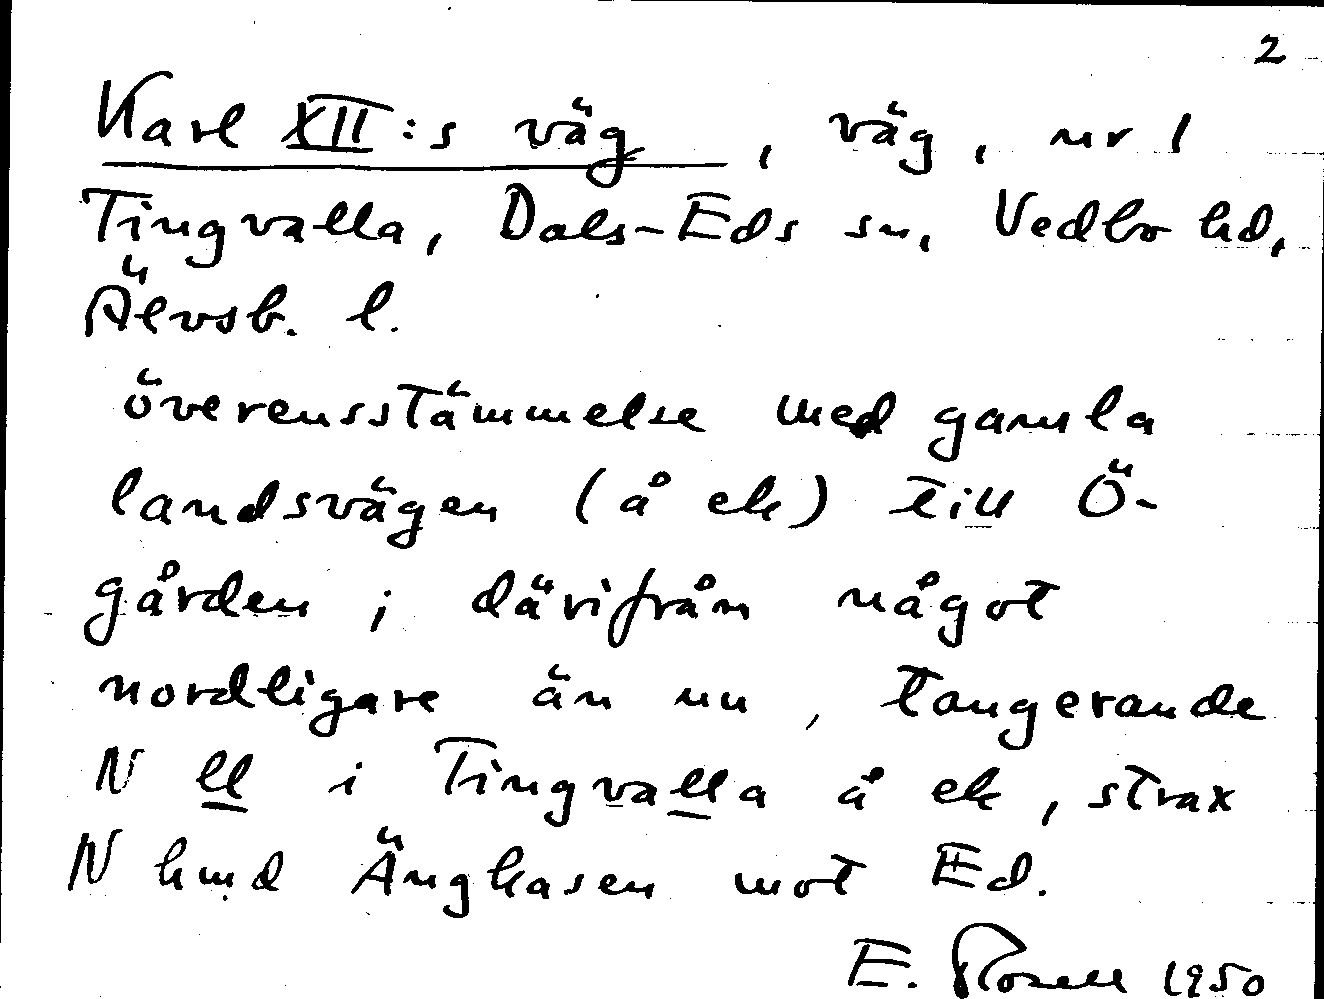 2
Karl XII:s väg, väg, nr 1
Tingvalla, Dals-Eds sn, Vedbo hd,
Älvsb. l.
överensstämmelse med gamla
landsvägen (å ek) till Ö-
gården; därifrån något
nordligare än nu, tangerande
N ll i Tingvalla å ek, strax
N hmd Ängkasen mot Ed.
E. Rosell 1950